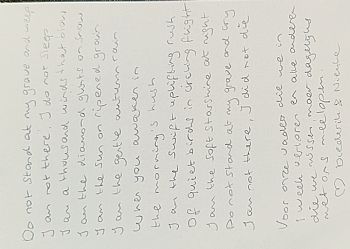 Do not stand at my grave and weep
I am not there, I do not sleep
I am a thousand winds that blow
I am the diamond glints on snow
I am the sun on ripened grain
I am the gentle autumn rain
When you awaken in
the morning's hush
I am the swift uplifting rush
Of quiet birds in circling flight
I am the soft starshine at night
Do not stand at my grave and cry
I am not there, I did not die
Voor onze vader die we in
1 week verloren en alle anderen
die we missen maar dagelijks
met ons meelopen.
♡ Diederik & Nienke